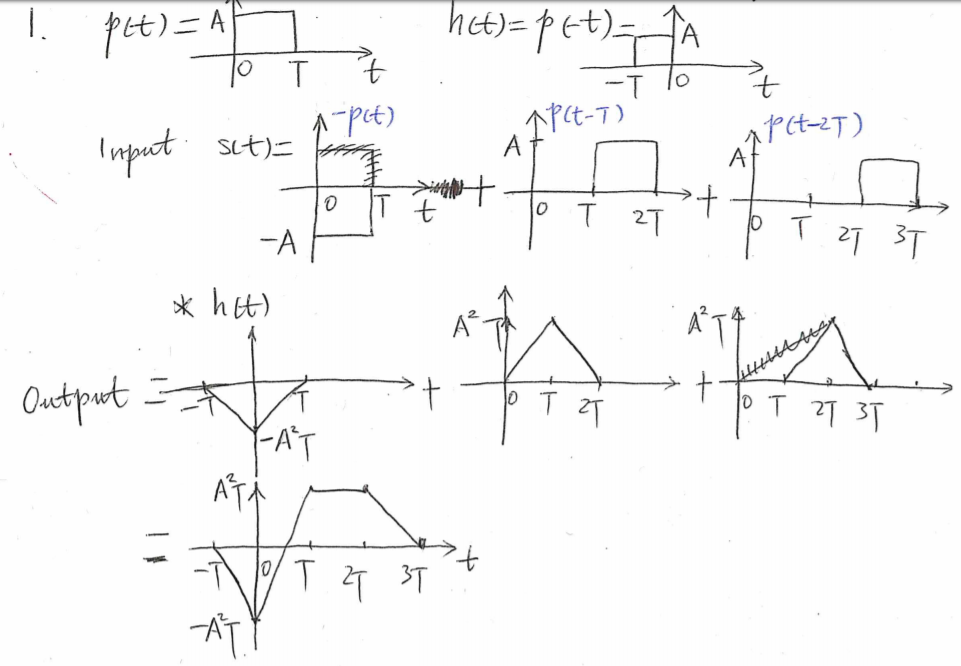 1. p(t) = A 0 T t h(t) = p(-t) = A -T 0 t
Input s(t) = -p(t) 0 T t -A + p(t-T) A 0 T 2T + p(t-2T) A 0 T 2T 3T
* h(t)
Output = -T T -A²T + A²T 0 T 2T + A²T 0 T 2T 3T
= A²T -T 0 T 2T 3T t -A²T